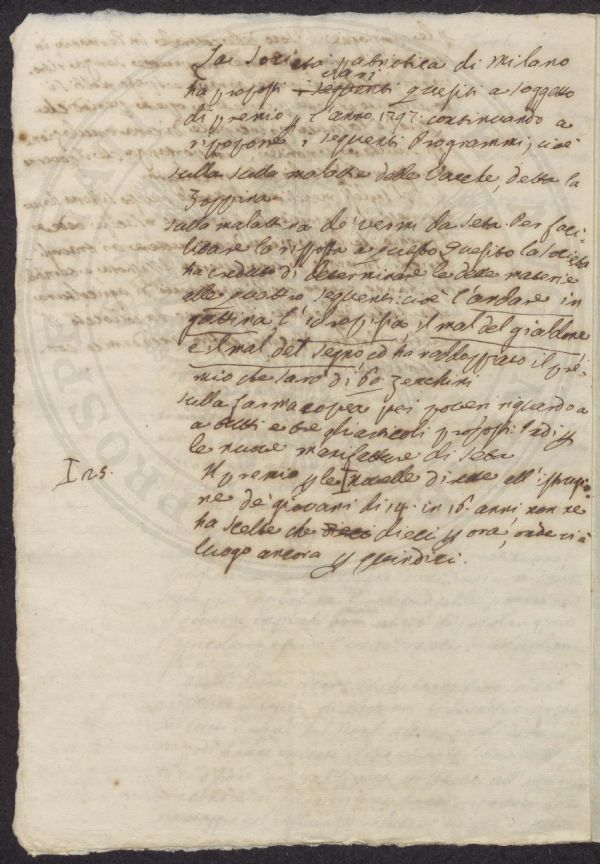 La Società patriotica di Milano
varj
ha proposti seguenti quesiti a soggetto
di premio p l'anno 1797. continuando a
riproporre i seguenti Programmi, cioè
sulla sulla malattia delle Vacche, detta la
Zoppina
sulla malattia de' vermi da seta. Per faci-
litare la risposta a questo Quesito la Società
ha creduto di determinare le dette materie
alle quattro seguenti cioè l'andare in
gattina, l'idropisia, il mal del giallone
e il mal del segno, ed ha raddoppiato il pre-
mio che sarà di 60 zecchini
sulla farmacopea pei poveri riguardo a
a tutti e tre gli articoli proposti. Indi p
le nuove manifatture di seta
Il premio p le Novelle dirette all'istruzio-
Ins.
ne de' giovani di 14. in 16. anni non ne
ha scelte che dieci p ora, onde vi è
luogo ancora p quindici.